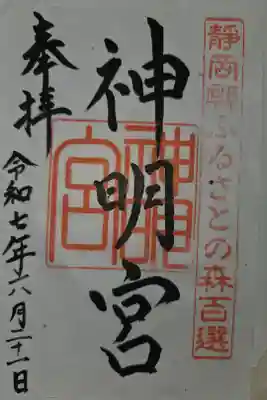 靜岡縣ふるさとの森百選
神明宮
神明
宮
奉拝
令和七年六月二十一日